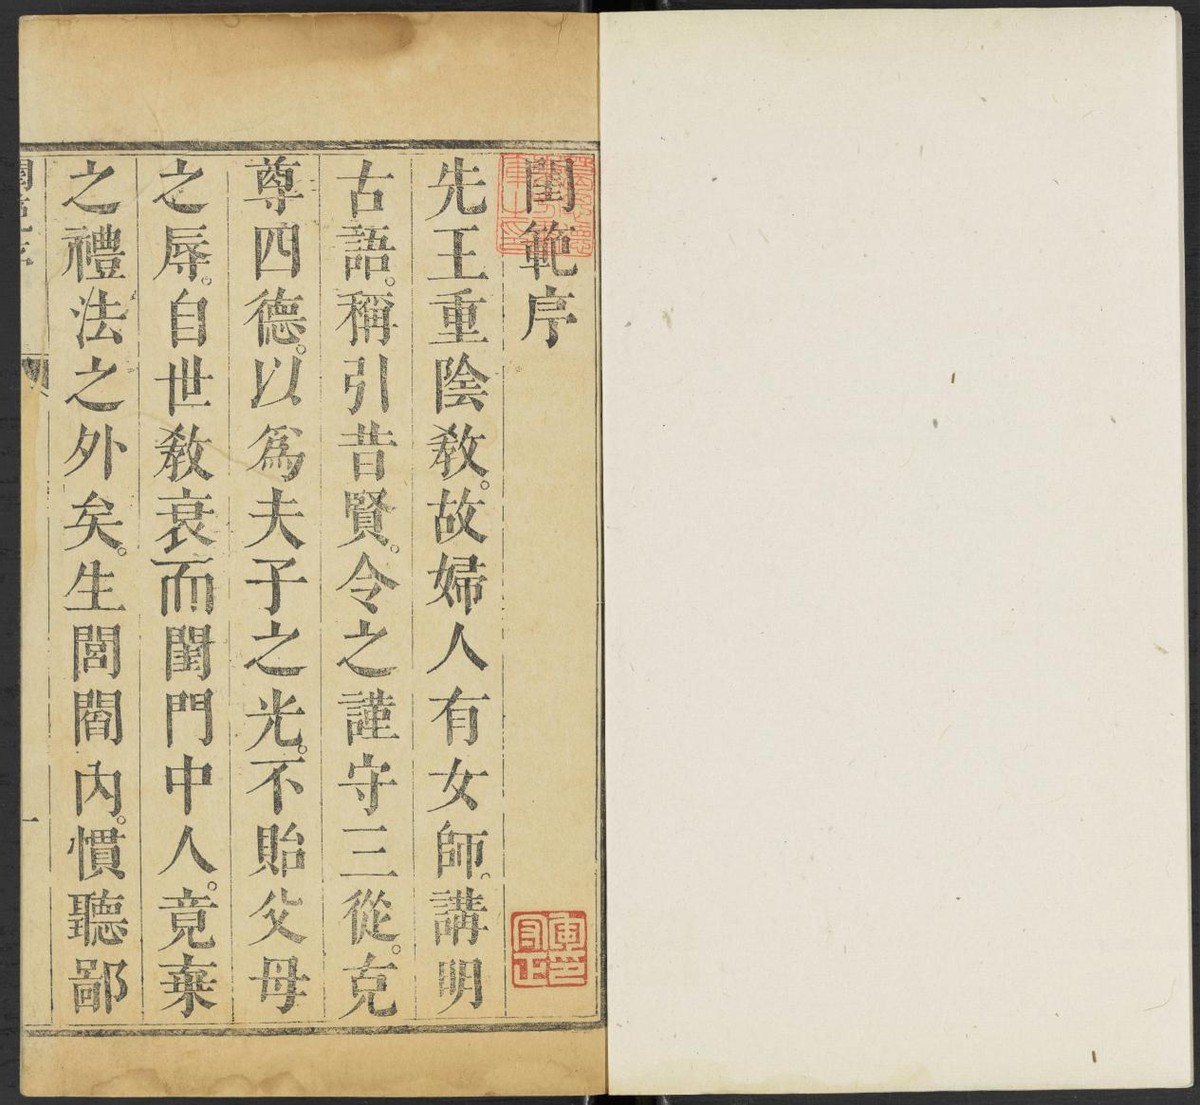 閨範序
先王重陰敎。故婦人有女師。講明
古語。稱引昔賢。令之謹守三從。克
尊四德。以爲夫子之光。不貽父母
之辱。自世敎衰而閨門中人。竟棄
之禮法之外矣。生閭閻內。慣聽鄙
閨範序
一